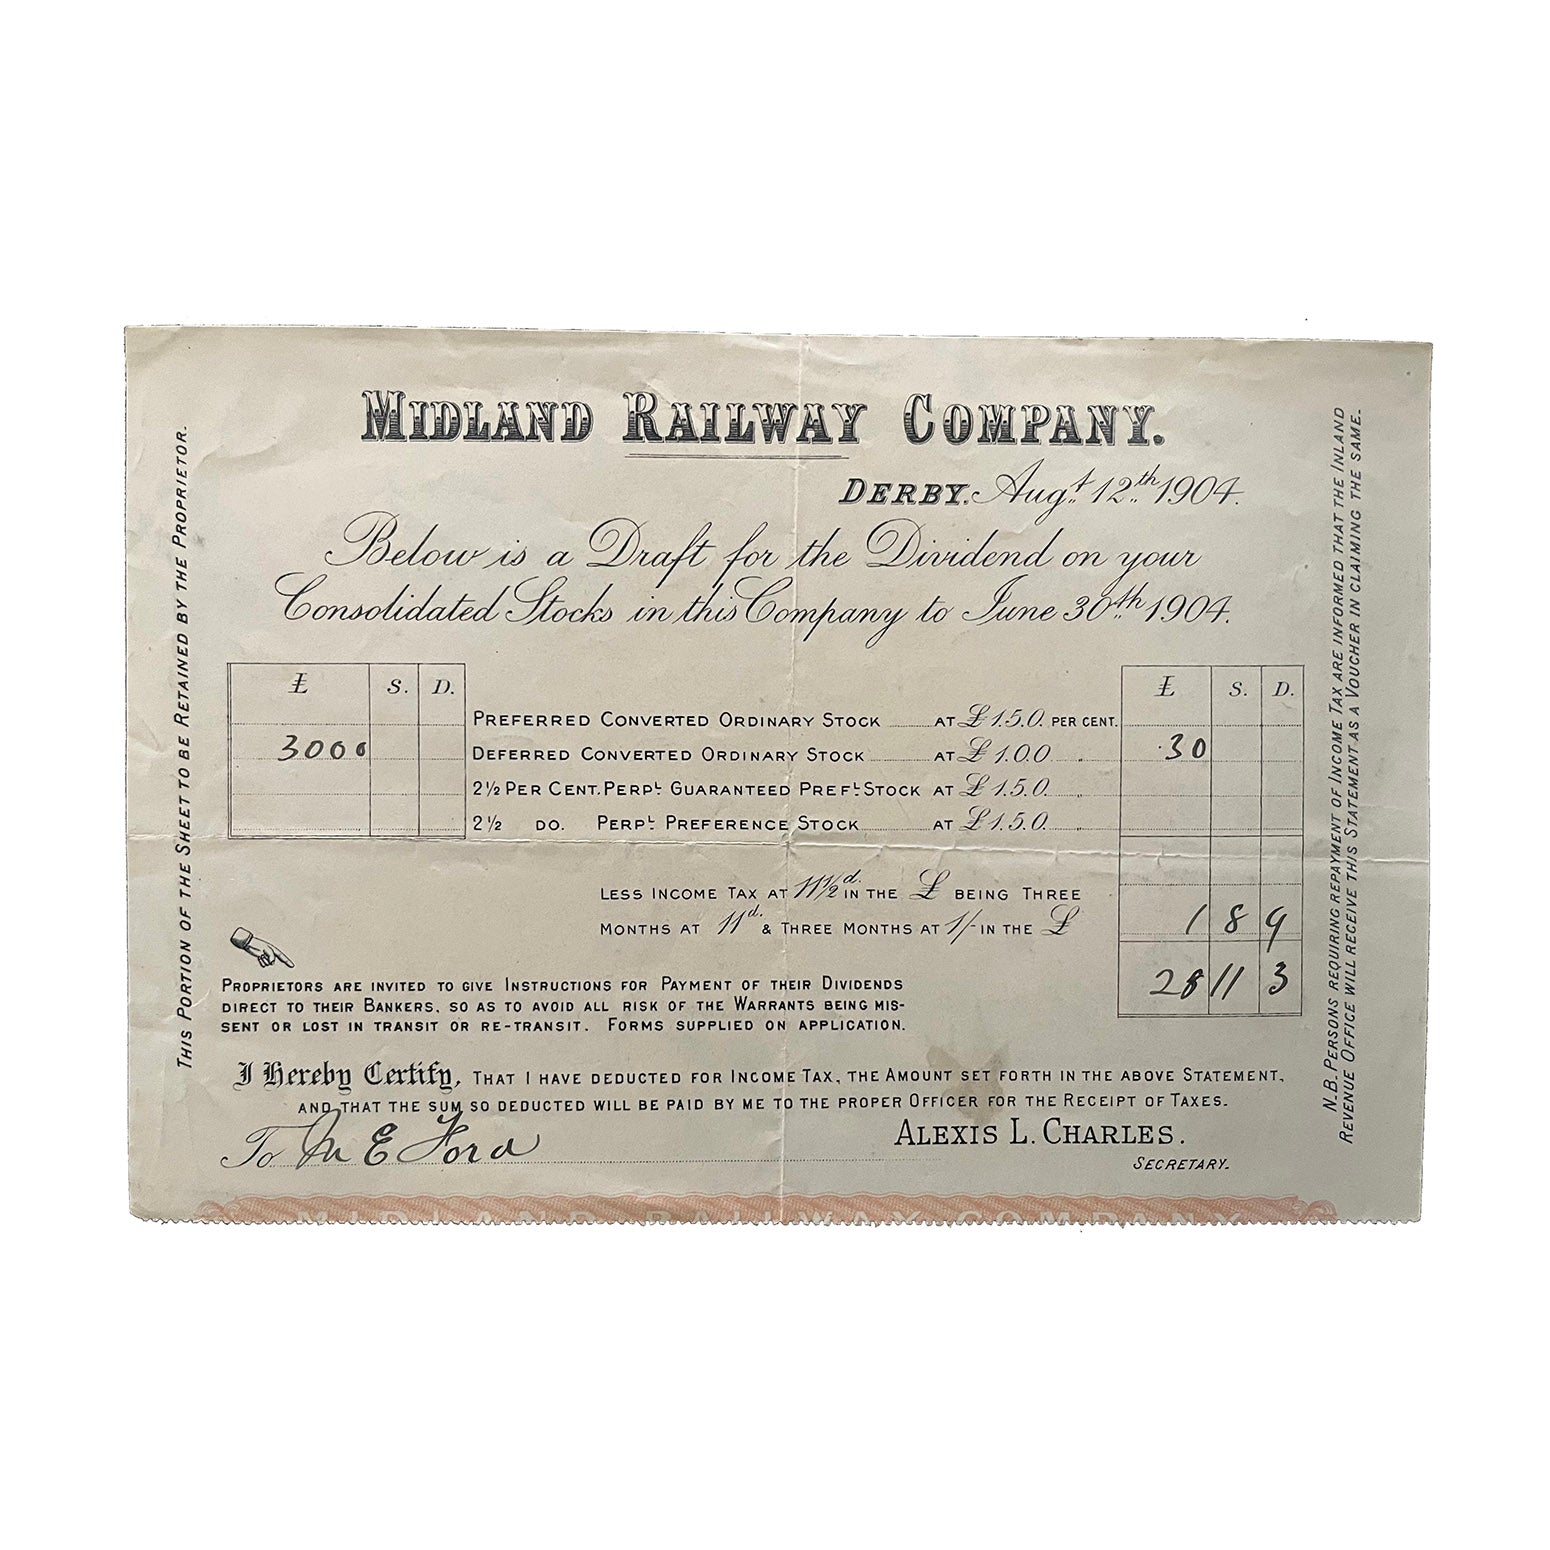 MIDLAND RAILWAY COMPANY.
DERBY. Augt. 12th 1904.
Below is a Draft for the Dividend on your
Consolidated Stocks in this Company to June 30th 1904.
£ S. D. £ S. D.
PREFERRED CONVERTED ORDINARY STOCK AT £1.5.0. PER CENT.
3000 DEFERRED CONVERTED ORDINARY STOCK AT £1.0.0 „ 30
2½ PER CENT. PERPL. GUARANTEED PREFL. STOCK AT £1.5.0. „
2½ DO. PERPL. PREFERENCE STOCK AT £1.5.0. „
LESS INCOME TAX AT 11½d. IN THE £ BEING THREE
MONTHS AT 11d. & THREE MONTHS AT 1/- IN THE £ 1 8 9
28 11 3
PROPRIETORS ARE INVITED TO GIVE INSTRUCTIONS FOR PAYMENT OF THEIR DIVIDENDS
DIRECT TO THEIR BANKERS, SO AS TO AVOID ALL RISK OF THE WARRANTS BEING MIS-
SENT OR LOST IN TRANSIT OR RE-TRANSIT. FORMS SUPPLIED ON APPLICATION.
I Hereby Certify, THAT I HAVE DEDUCTED FOR INCOME TAX, THE AMOUNT SET FORTH IN THE ABOVE STATEMENT,
AND THAT THE SUM SO DEDUCTED WILL BE PAID BY ME TO THE PROPER OFFICER FOR THE RECEIPT OF TAXES.
ALEXIS L. CHARLES.
To M E Ford
SECRETARY.
MIDLAND RAILWAY COMPANY
THIS PORTION OF THE SHEET TO BE RETAINED BY THE PROPRIETOR.
N.B. PERSONS REQUIRING REPAYMENT OF INCOME TAX ARE INFORMED THAT THE INLAND
REVENUE OFFICE WILL RECEIVE THIS STATEMENT AS A VOUCHER IN CLAIMING THE SAME.